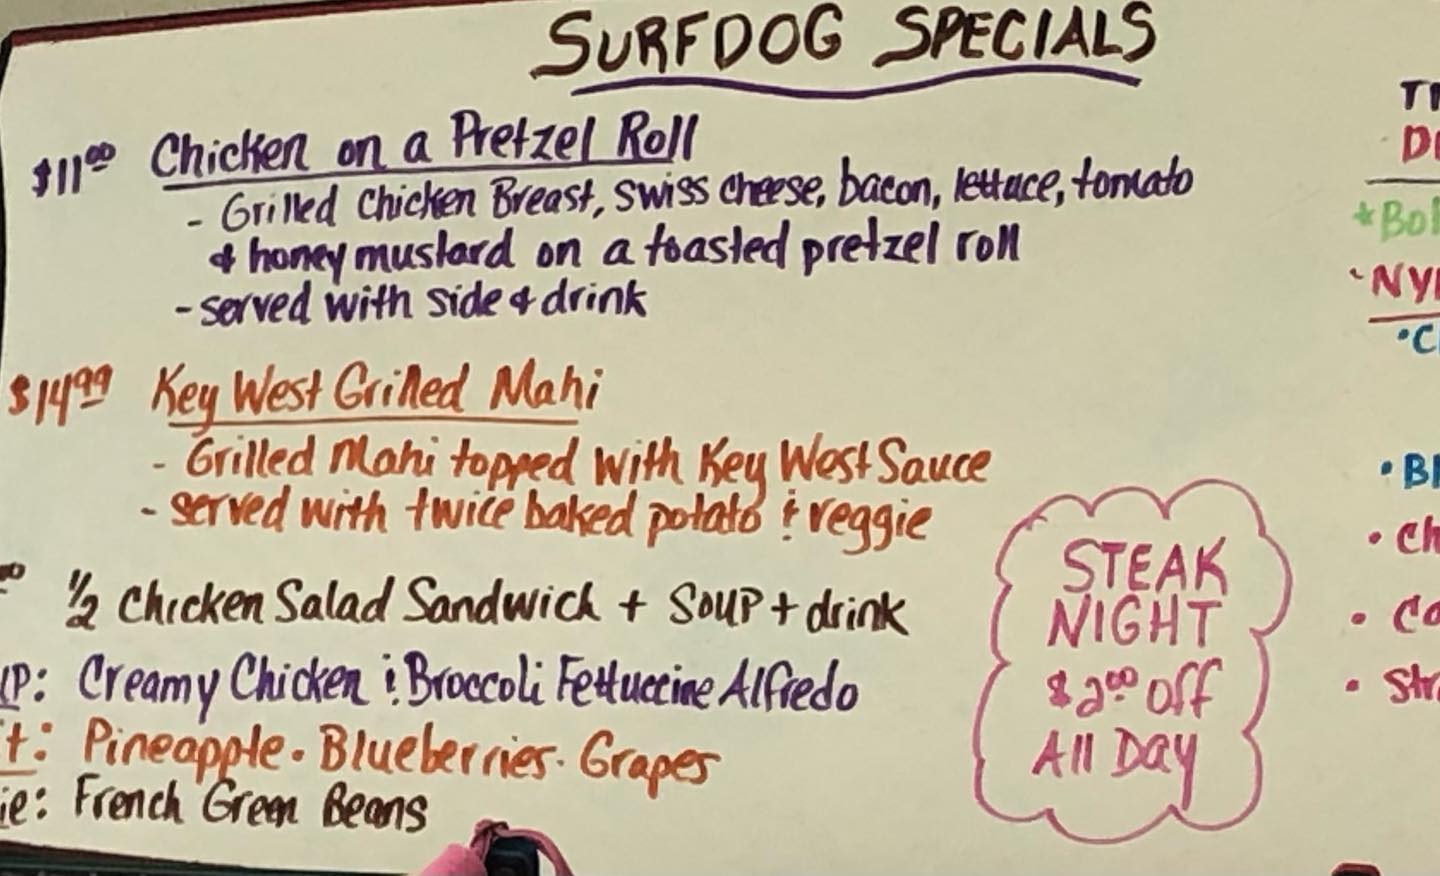 SURFDOG SPECIALS
$11.00 Chicken on a Pretzel Roll
- Grilled Chicken Breast, swiss cheese, bacon, lettuce, tomato
& honey mustard on a toasted pretzel roll
- served with side & drink
$14.99 Key West Grilled Mahi
- Grilled Mahi topped with Key West Sauce
- served with twice baked potato & veggie
½ Chicken Salad Sandwich + Soup + drink
Creamy Chicken & Broccoli Fettuccine Alfredo
Pineapple · Blueberries · Grapes
French Green Beans
STEAK
NIGHT
$2.00 off
All Day